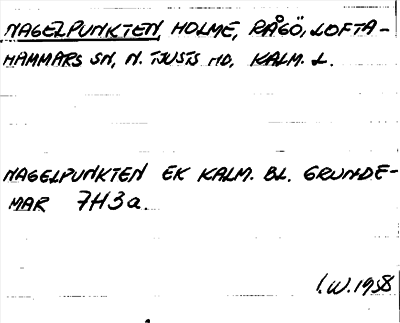 NAGELPUNKTEN, HOLME, RÅGÖ, LOFTA-
HAMMARS SN, N. TJUSTS HD, KALM. L.
NAGELPUNKTEN EK KALM. BL. GRUNDE-
MAR 7H3a.
I.W. 1958